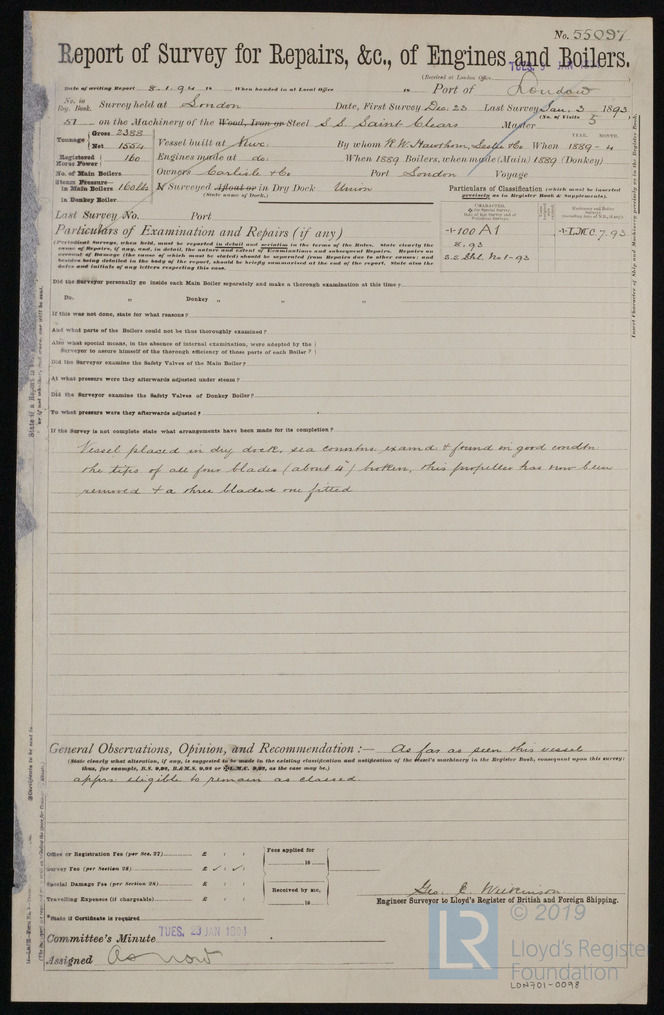 No. 55097
Report of Survey for Repairs, &c., of Engines and Boilers.
(Received at London Office
TUES. 9 JAN 189
Date of writing Report 8.1.94 18 When handed in at Local Office 18 Port of London
No. in Reg. Book. Survey held at London Date, First Survey Dec. 23 Last Survey Jan. 3 1893
(No. of Visits 5
51 on the Machinery of the Wood, Iron or Steel S S Saint Clears Master
Tonnage Gross 2388
Net 1554
Vessel built at Newc: By whom R. W. Hawthorn, Leslie & Co. When 1889-4
YEAR. MONTH.
Registered Horse Power 160 Engines made at do: When 1889 Boilers, when made (Main) 1889 (Donkey)
No. of Main Boilers Owners Carlisle & Co Port London Voyage
Steam Pressure in Main Boilers 160 lbs If Surveyed Afloat or in Dry Dock Union
(State name of Dock.)
in Donkey Boiler
Particulars of Classification (which must be inserted precisely as in Register Book & Supplements).
Last Survey No. Port
Particulars of Examination and Repairs (if any)
+100 A1
8.93
S.S. Shl. No 1-93
+L.M.C. 7.93
(Periodical Surveys, when held, must be reported in detail and seriatim in the terms of the Rules. State clearly the
cause of Repairs, if any, and, in detail, the nature and extent of Examinations and subsequent Repairs. Repairs on
account of Damage (the cause of which must be stated) should be separated from Repairs due to other causes; and
besides being detailed in the body of the report, should be briefly summarised at the end of the report. State also the
dates and initials of any letters respecting this case.
Did the Surveyor personally go inside each Main Boiler separately and make a thorough examination at this time?
Do. " Donkey " " "
If this was not done, state for what reasons?
And what parts of the Boilers could not be thus thoroughly examined?
Also what special means, in the absence of internal examination, were adopted by the
Surveyor to assure himself of the thorough efficiency of those parts of each Boiler?
Did the Surveyor examine the Safety Valves of the Main Boiler?
At what pressure were they afterwards adjusted under steam?
Did the Surveyor examine the Safety Valves of Donkey Boiler?
To what pressure were they afterwards adjusted?
If the Survey is not complete state what arrangements have been made for its completion?
Vessel placed in dry dock, sea connctns examd & found in good condtn
the tips of all four blades (about 4") broken, this propeller has now been
removed & a three bladed one fitted
General Observations, Opinion, and Recommendation :— As far as seen this vessel
(State clearly what alteration, if any, is suggested to be made in the existing classification and notification of the vessel's machinery in the Register Book, consequent upon this survey;
thus, for example, B.S. 9,92, B.&M.S. 9,92 or L.M.C. 9,92, as the case may be.)
apprs eligible to remain as classed
Office or Registration Fee (per Sec. 27) £ : :
Survey Fee (per Section 28) £ : :
Special Damage Fee (per Section 28) £ : :
Travelling Expenses (if chargeable) £ : :
Fees applied for
18
Received by me,
18
Geo. E. Wilkinson
Engineer Surveyor to Lloyd's Register of British and Foreign Shipping.
*State if Certificate is required
Committee's Minute TUES. 23 JAN 1894
Assigned As now
LR
© 2019
Lloyd's Register
Foundation
LDN701-0098
Insert Character of Ship and Machinery precisely as in the Register Book.